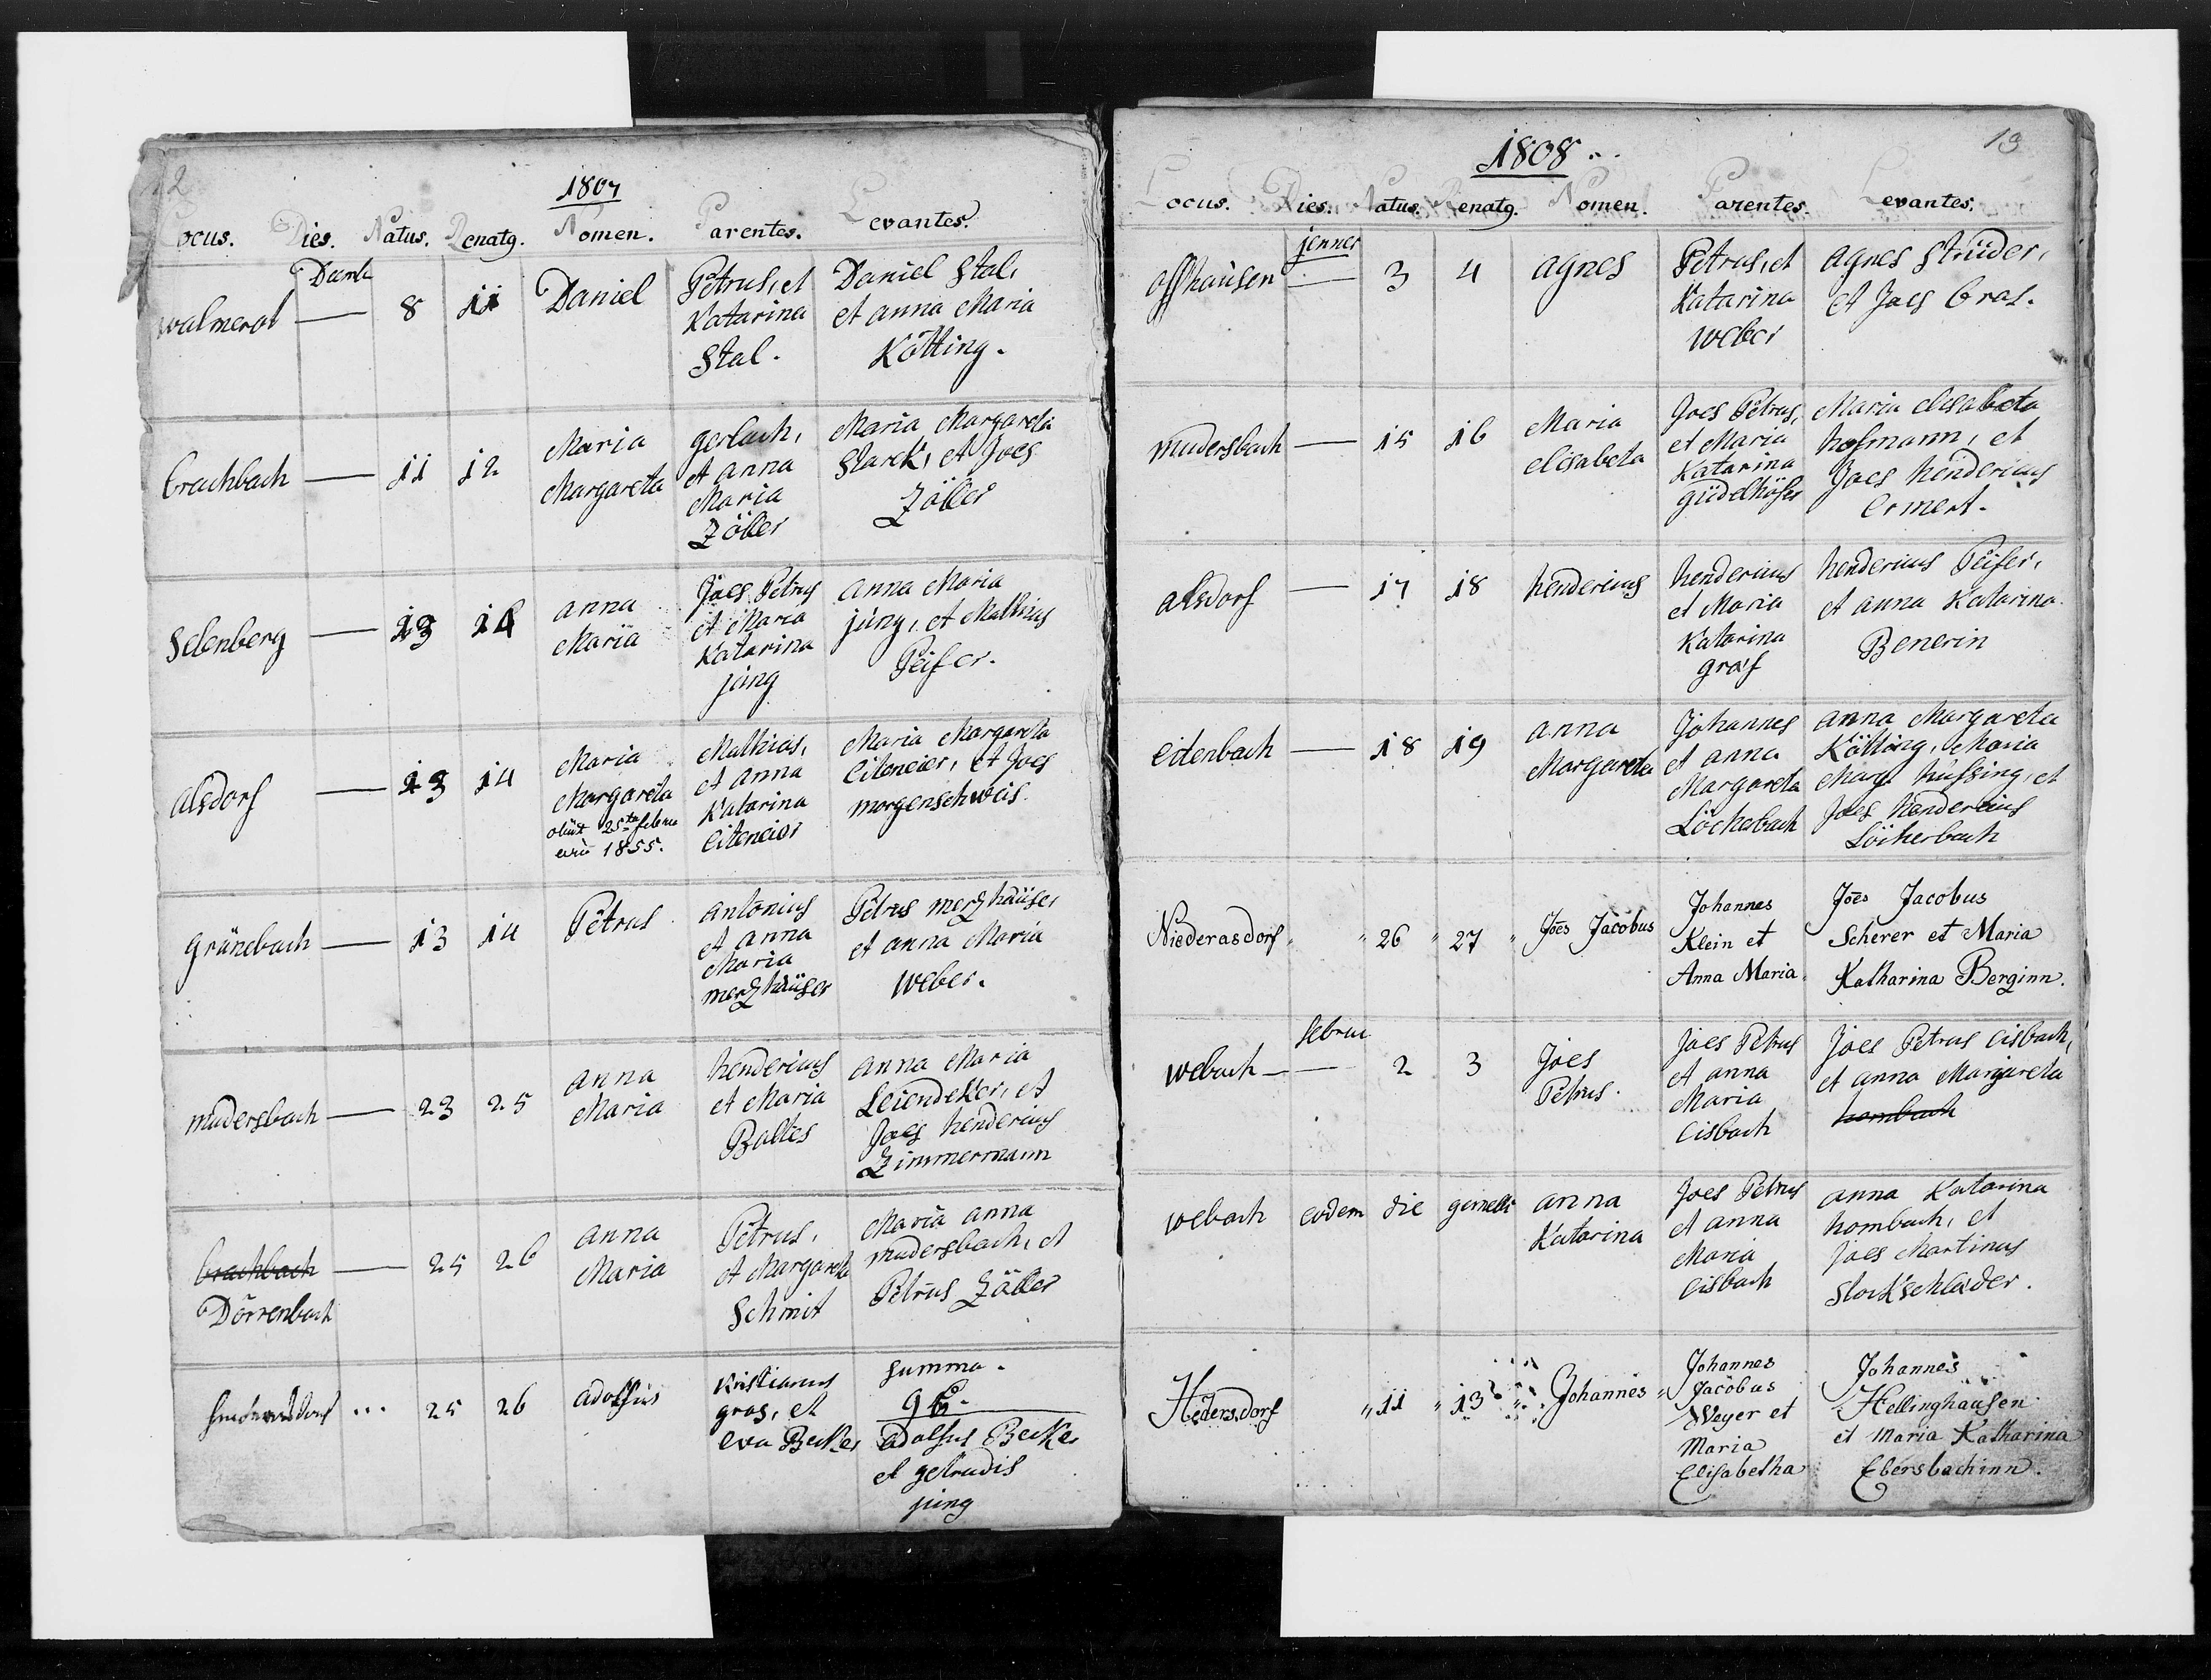 12
1807
Locus. Dies. Natus. Renatq. Nomen. Parentes. Levantes.
Decemb
walmerot — 8 11 Daniel
Petrus, et
Katarina
Stal.
Daniel Stal,
et anna Maria
Kötting.
brachbach — 11 12
Maria
Margareta
gerlach,
et anna
Maria
Zöller
Maria Margareta
Stark, et Joes
Zöller
Selenberg — 13 14
anna
Maria
Joes Petrus
et Maria
Katarina
jung
anna Maria
jung, et Mathias
Peifer.
alsdorf — 13 14
Maria
Margareta
obiit 25ta februa
1855.
Mathias,
et anna
Katarina
Eiteneier
Maria Margareta
Eiteneier, et Joes
morgenschweis.
grünebach — 13 14 Petrus
antonius
et anna
Maria
merzhäuser
Petrus merzhäuser
et anna Maria
weber.
mudersbach — 23 25
anna
Maria
henderius
et Maria
Baltes
anna Maria
Leiendeker, et
Joes henderius
Zimmermann
brachbach
Dörrenbach — 25 26
anna
Maria
Petrus,
et Margareta
Schmit
Maria anna
mudersbach, et
Petrus Zöller
... 25 26 adolfus
Kristianus
gras, et
eva Becker
Summa.
96.
adolfus Becker
et getrudis
jung
13
1808
Locus. Dies. Natus. Renatq. Nomen. Parentes. Levantes.
jenner
offhausen — 3 4 agnes
Petrus, et
Katarina
weber
agnes Strüder,
et Joes bras.
mudersbach — 15 16
Maria
elisabeta
Joes Petrus,
et Maria
Katarina
güdelhöfer
Maria elisabeta
hofmann, et
Joes henderius
ermert.
alsdorf — 17 18 henderius
henderius
et Maria
Katarina
graf
henderius Peifer,
et anna Katarina
Benerin
eitenbach — 18 19
anna
Margareta
Johannes
et anna
Margareta
Löcherbach
anna Margareta
Kötting, Maria
Marg. hüssing, et
Joes henderius
Löcherbach
Niederasdorf " " 26 " 27 " Joes Jacobus
Johannes
Klein et
Anna Maria.
Joes Jacobus
Scherer et Maria
Katharina Berginn.
februa
webach — 2 3
Joes
Petrus.
Joes Petrus
et anna
Maria
eisbach
Joes Petrus eisbach,
et anna Margareta
hombach
webach eodem die gemelli
anna
Katarina
Joes Petrus
et anna
Maria
eisbach
anna Katarina
hombach, et
Joes Martinus
Stockschlader.
Hedersdorf " 11 " 13 " Johannes "
Johannes
Jacobus
Weyer et
Maria
Elisabetha
Johannes
Hellinghausen
et Maria Katharina
Ebersbachinn.